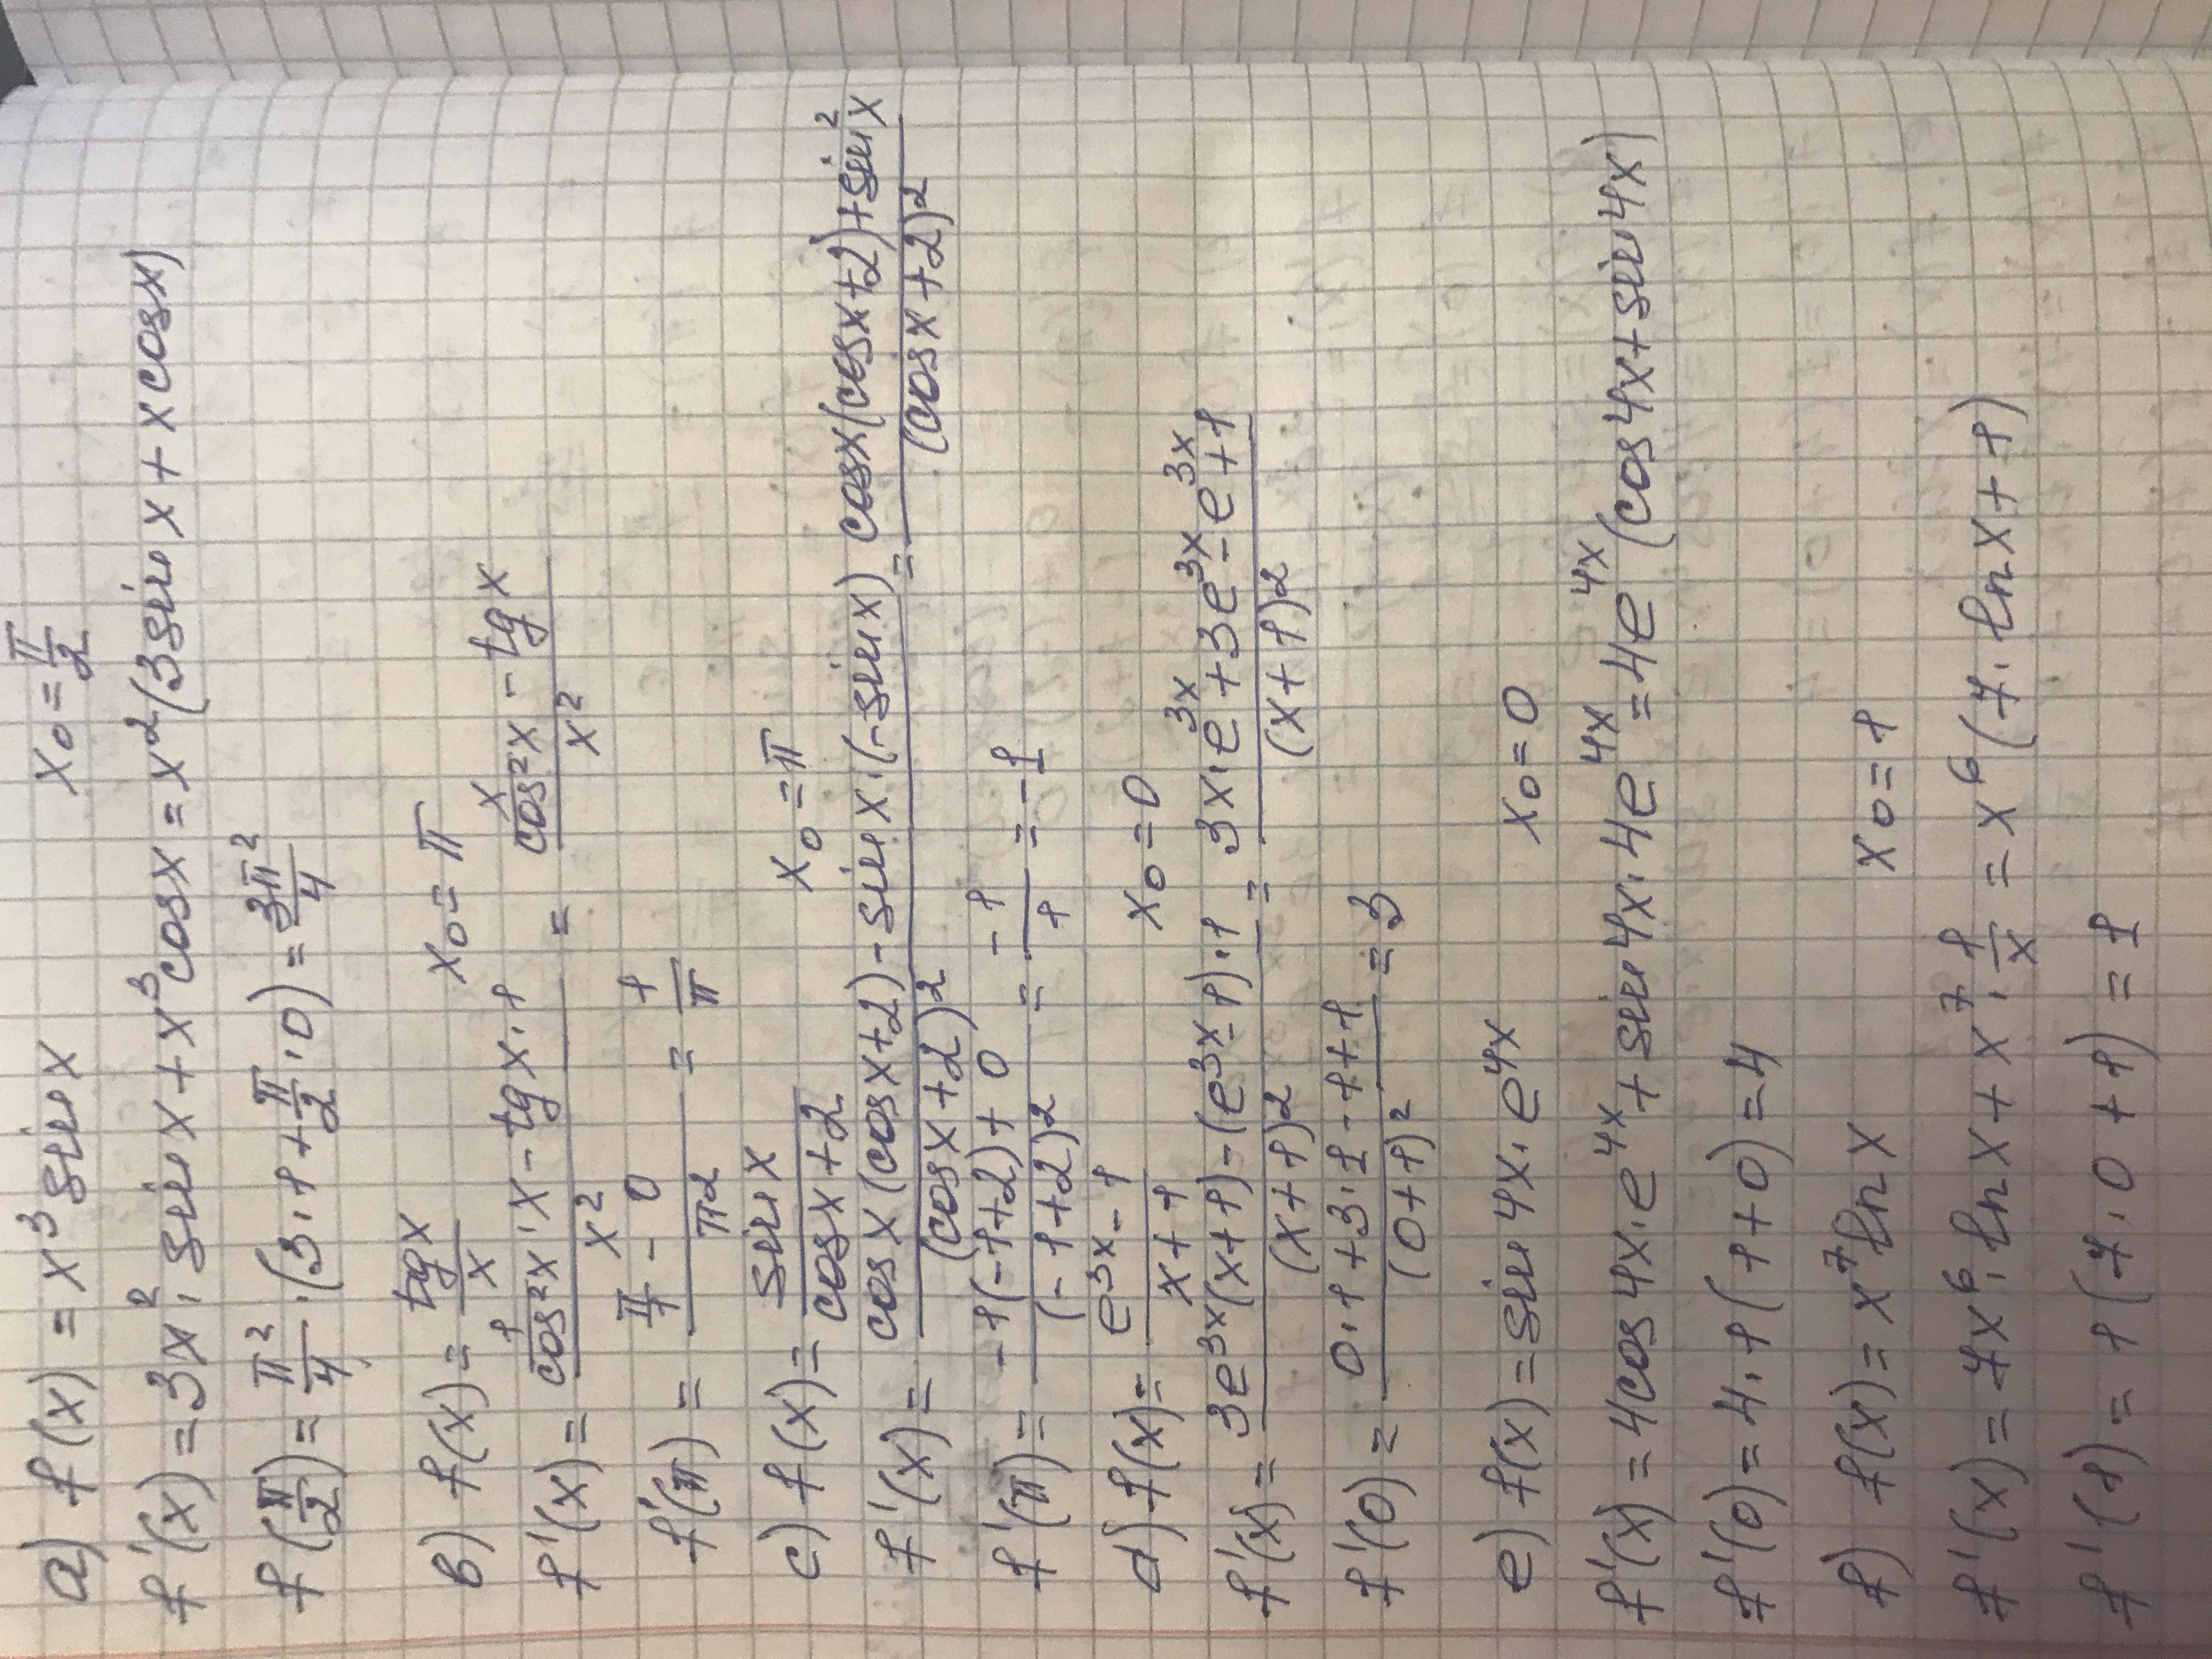 a) f(x) = x³ sin x    x₀ = π/2
f'(x) = 3x² · sin x + x³ cos x = x²(3 sin x + x cos x)
f(π/2) = π²/4 · (3·1 + π/2 · 0) = 3π²/4
b) f(x) = tg x / x    x₀ = π
f'(x) = (1/cos²x · x - tg x · 1) / x² = (x/cos²x - tg x) / x²
f'(π) = (π/1 - 0) / π² = 1/π
c) f(x) = sin x / (cos x + 2)    x₀ = π
f'(x) = (cos x (cos x + 2) - sin x · (-sin x)) / (cos x + 2)² = (cos x (cos x + 2) + sin² x) / (cos x + 2)²
f'(π) = (-1(-1+2) + 0) / (-1+2)² = -1/1 = -1
d) f(x) = (e³ˣ - 1) / (x + 1)    x₀ = 0
f'(x) = (3e³ˣ(x+1) - (e³ˣ - 1)·1) / (x+1)² = (3x · e³ˣ + 3e³ˣ - e³ˣ + 1) / (x+1)²
f'(0) = (0·1 + 3·1 - 1 + 1) / (0+1)² = 3
e) f(x) = sin 4x · e⁴ˣ    x₀ = 0
f'(x) = 4cos 4x · e⁴ˣ + sin 4x · 4e⁴ˣ = 4e⁴ˣ (cos 4x + sin 4x)
f'(0) = 4·1(1+0) = 4
f) f(x) = x⁷ ln x    x₀ = 1
f'(x) = 7x⁶ · ln x + x⁷ · 1/x = x⁶ (7 · ln x + 1)
f'(1) = 1(7·0 + 1) = 1